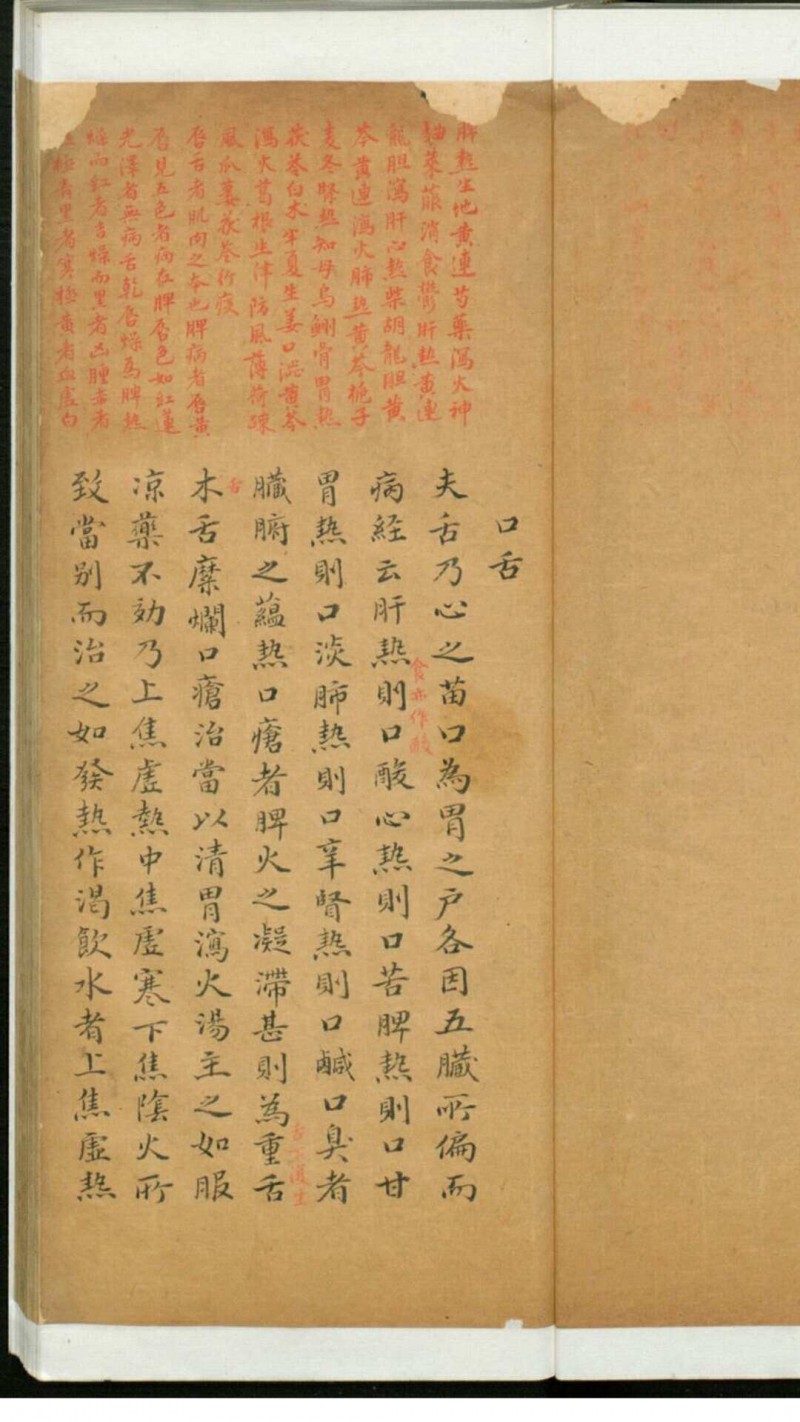 口舌
夫舌乃心之苗口為胃之户各因五臟所偏而
病経云肝熱則口酸心熱則口苦脾熱則口甘
食亦作酸
胃熱則口淡肺熱則口辛腎熱則口鹹口臭者
臟腑之蘊熱口瘡者脾火之凝滯甚則為重舌
木舌糜爛口瘡治當以清胃瀉火湯主之如服
舌
凉藥不効乃上焦虛熱中焦虛寒下焦陰火所
致當别而治之如發熱作渴飲水者上焦虛熱
脾熱生地黄連芍藥瀉火神
麯萊菔消食鬱肝熱黄連
龍胆瀉肝心熱柴胡龍胆黄
芩黄連瀉火肺熱黄芩梔子
麦冬腎熱知母烏鰂骨胃熱
茯苓白术半夏生姜口澁黄芩
瀉火葛根生津防風薄荷疎
風瓜蔞茯苓行痰
唇舌者肌肉之本也脾病者唇黄
唇見五色者病在脾唇色如紅蓮
光澤者無病舌乾唇燥為脾熱
燥而紅者吉燥而黑者凶腫赤者
極黑者寒極黄者血虛白